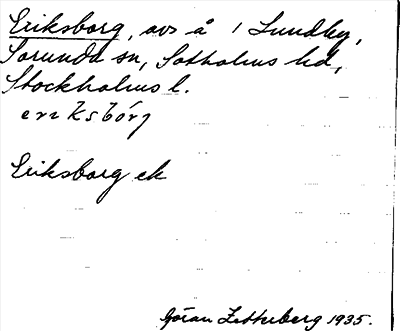 Eriksborg, avs å 1 Lundby,
Sorunda sn, Sotholms hd,
Stockholms l.
eriksbórj
Eriksborg ek
Göran Zetterberg 1935.